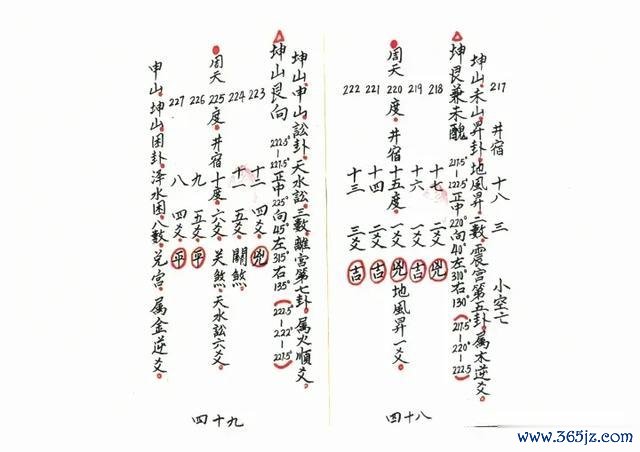 217 井宿 十八 三 小空亡
坤山.未山.昇卦.地風昇.二數.震宮第五卦.属木逆爻.
坤艮兼未醜 217.5°—222.5°正中220°向40°左310°右130°(217.5°—220°—222.5)
218 十七 二爻 凶
219 十六 二爻 吉
周天220度.井宿十五度.一爻.凶 地風昇一爻.
221 十四 二爻 吉
222 十三 三爻 吉
四十八
坤山.申山.訟卦.天水訟.三數.離宮第七卦.属火順爻.
坤山艮向 222.5°—227.5°正中225°向45°左315°右135°(222.5°—222°—227.5°)
223 十二 四爻.凶
224 十一 五爻.關煞
周天225度.井宿十度.六爻.关煞.天水訟六爻.
226 九 五爻.平
227 八 四爻.平
申山.坤山.困卦.泽水困.八數.兑宮.属金逆爻.
四十九
www.365jz.com